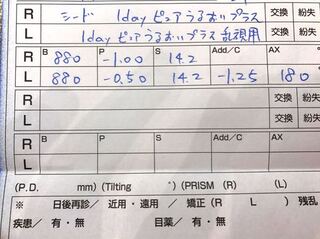 R シード 1day ピュアうるおいプラス 交換 紛失
L 1day ピュアうるおいプラス 乱視用 交換 紛失
B P S Add/C AX
R 880 -1.00 14.2 交換 紛失
L 880 -0.50 14.2 -1.25 180° 交換 紛失
B P S Add/C AX
R 交換 紛失
L 交換 紛失
(P.D. mm) (Tilting °) (PRISM (R) (L)
※ 日後再診/ 近用・遠用 / 矯正 (R L ) 残乱
疾患/ 有・無 目薬/ 有・無